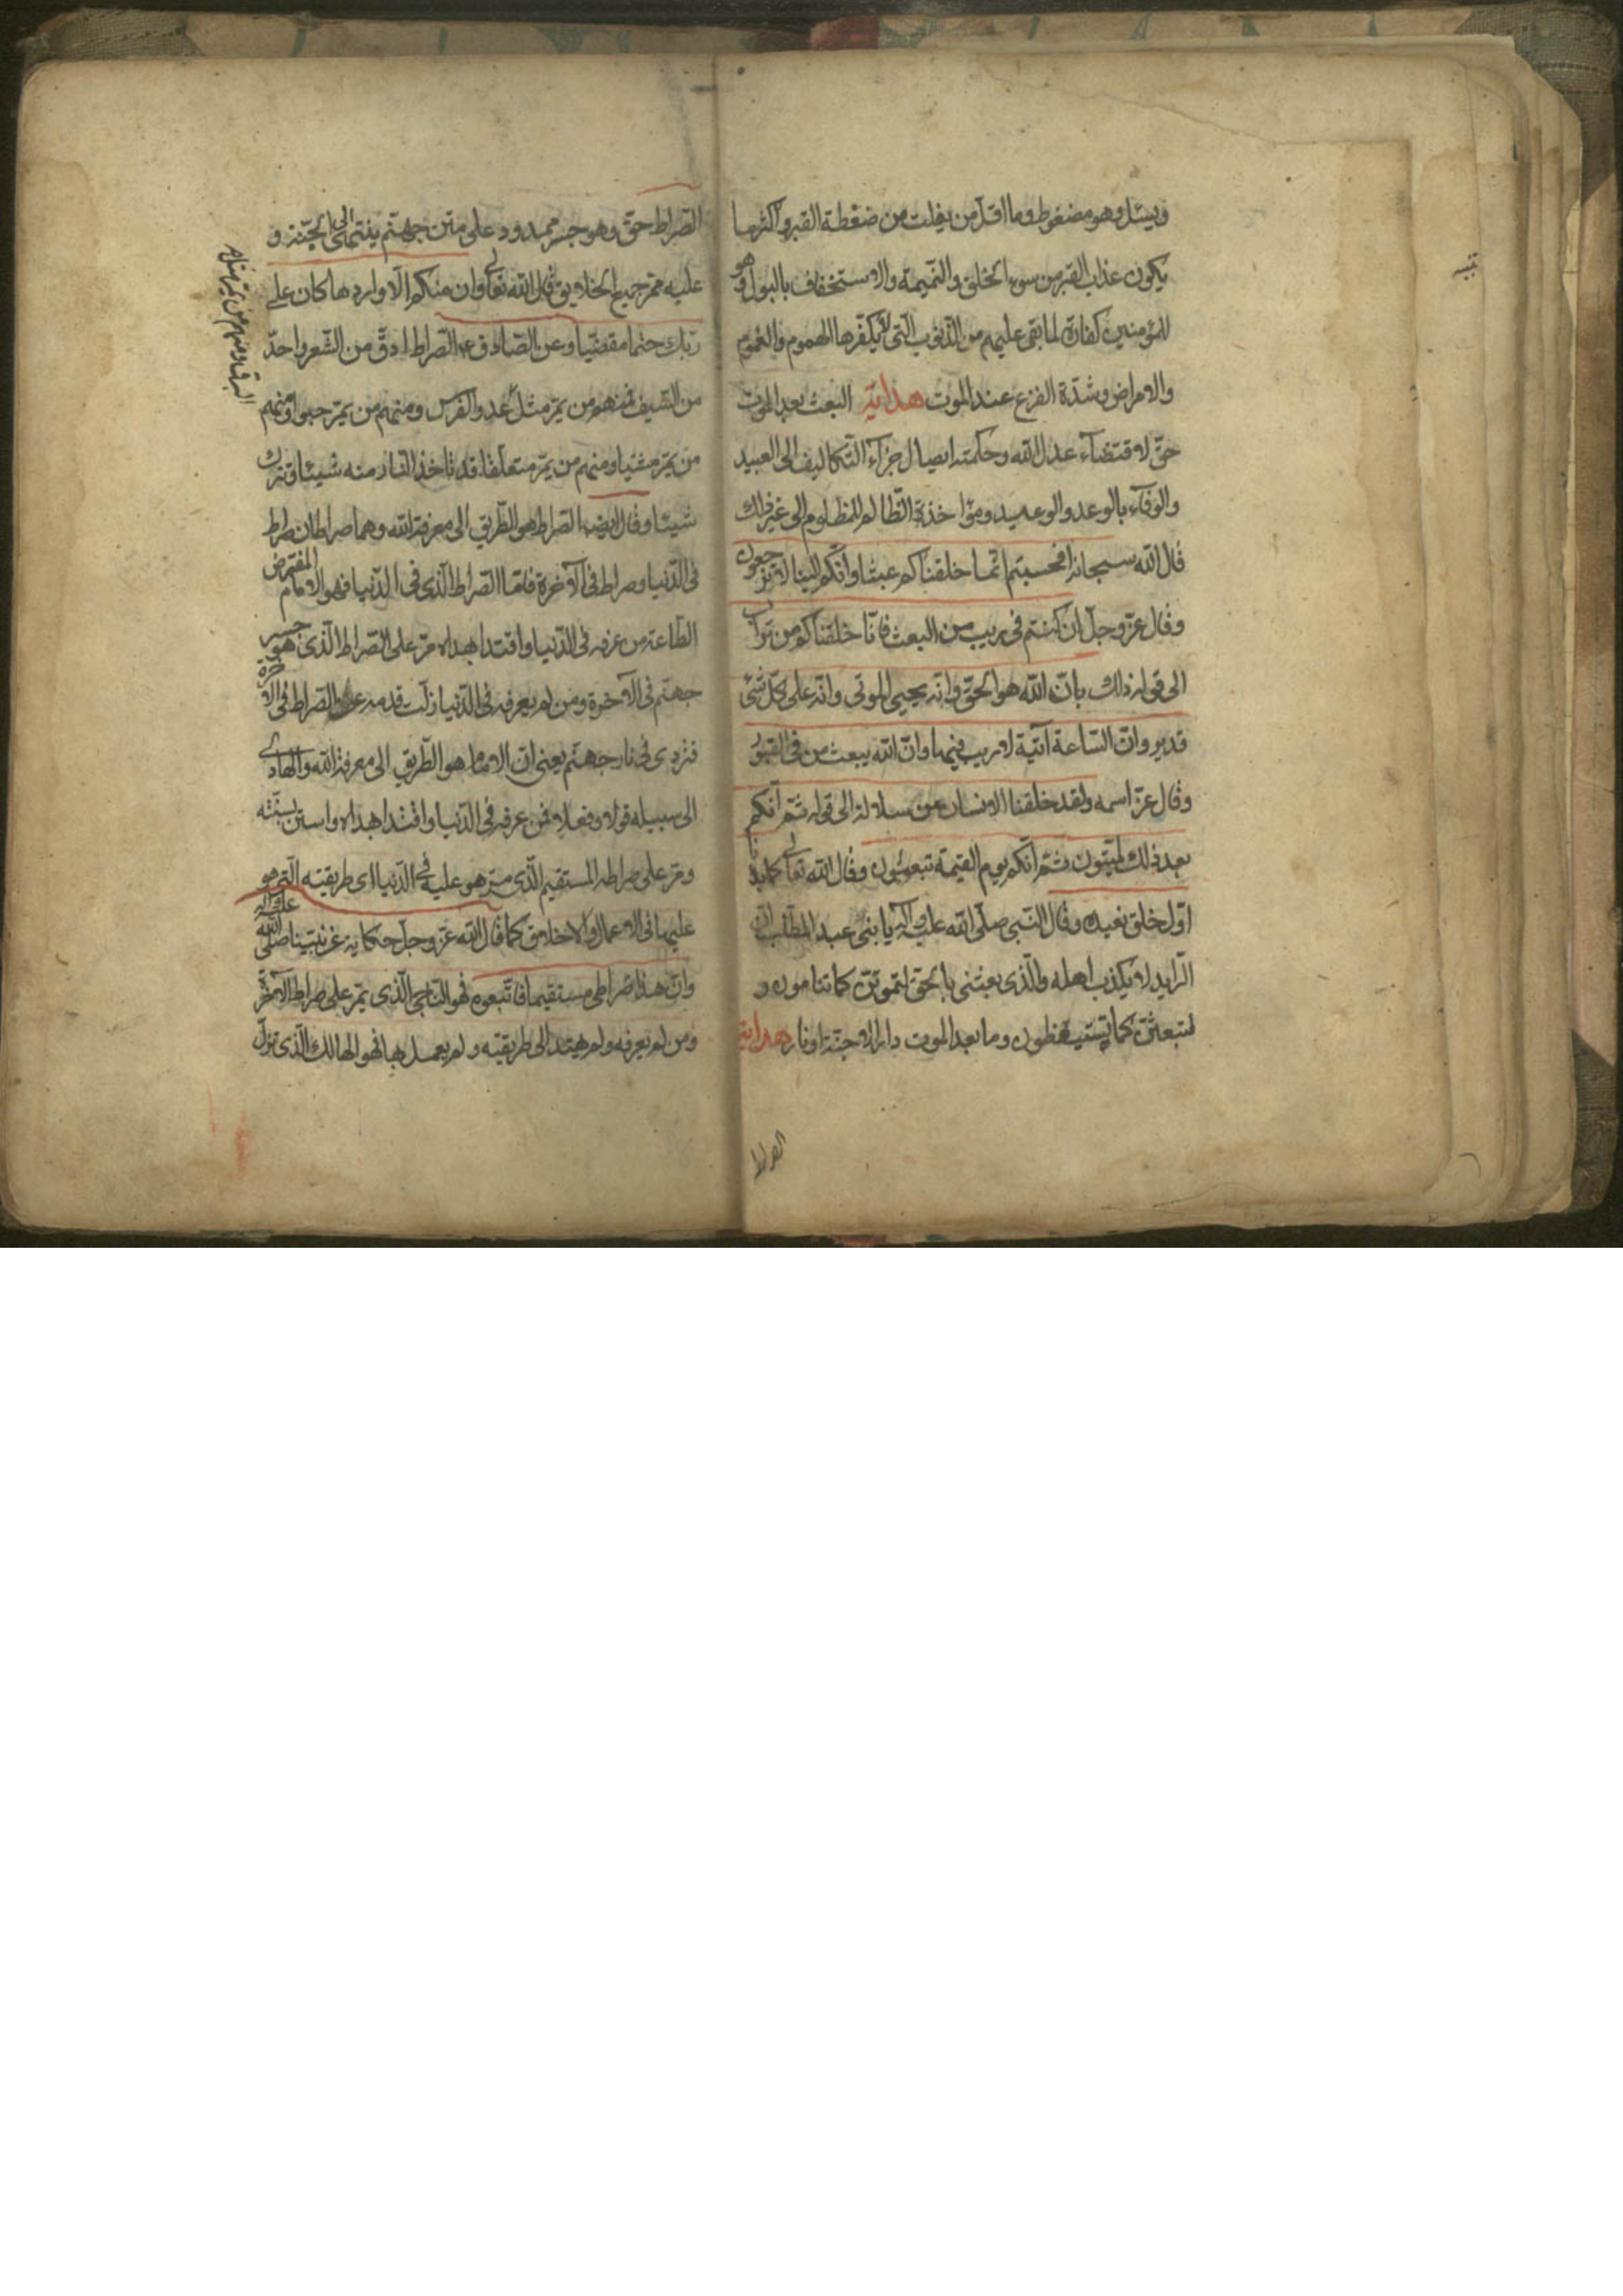 ويسئل وهو مضغوط وما اقلّ من يفلت من ضغطة القبر واكثر ما
يكون عذاب القبر من سوء الخلق والنميمة والاستخفاف بالبول وهو
للمؤمنين كفارة لما بقى عليهم من الذنوب التى لم يكفّرها الهموم والغموم
والامراض وشدّة الفزع عند الموت هداية البعث بعد الموت
حقّ لاقتضاء عدل الله وحكمته ايصال جزاء التكاليف الى العبيد
والوفاء بالوعد والوعيد ومؤاخذة الظالم للمظلوم الى غير ذلك
قال الله سبحانه افحسبتم انّما خلقناكم عبثا وانّكم الينا لا ترجعون
وقال عزّ وجلّ ان كنتم فى ريب من البعث فانّا خلقناكم من تراب
الى قوله ذلك بانّ الله هو الحقّ وانّه يحيى الموتى وانّه على كلّ شئ
قدير وانّ السّاعة آتية لا ريب فيها وانّ الله يبعث من فى القبور
وقال عزّ اسمه ولقد خلقنا الانسان من سلالة الى قوله ثمّ انّكم
بعد ذلك لميّتون ثمّ انّكم يوم القيمة تبعثون وقال الله تعالى كما بدأنا
اوّل خلق نعيده وقال النّبى صلّى الله عليه وآله يا بنى عبد المطّلب انّ
الرّايد لا يكذب اهله والّذى بعثنى بالحقّ لتموتنّ كما تنامون و
لتبعثنّ كما تستيقظون وما بعد الموت دار الا جنّة او نار هداية
الصراط
الصّراط حقّ وهو جسر ممدود على متن جهنّم ينتهى الى الجنّة و
عليه ممرّ جميع الخلايق قال الله تعالى وان منكم الّا واردها كان على
ربّك حتما مقضيّا وعن الصّادق ع الصّراط ادقّ من الشّعر واحدّ
من السّيف فمنهم من يمرّ مثل عدو الفرس ومنهم من يمرّ حبوا ومنهم
من يمرّ مشيا ومنهم من يمرّ متعلّقا قد تاخذ النّار منه شيئا وتترك
شيئا وقال ايضا الصّراط هو الطّريق الى معرفة الله وهما صراطان صراط
فى الدّنيا وصراط فى الآخرة فامّا الصّراط الّذى فى الدّنيا فهو الامام المفترض
الطّاعة من عرفه فى الدّنيا واقتدا بهداه مرّ على الصّراط الّذى هو جسر
جهنّم فى الآخرة ومن لم يعرفه فى الدّنيا زلّت قدمه عن الصّراط فى الآخرة
فتردى فى نار جهنّم يعنى انّ الامام هو الطّريق الى معرفة الله والهادى
الى سبيله قولا وفعلا فمن عرفه فى الدّنيا واقتدا بهداه واستنّ بسنّته
ومرّ على صراطه المستقيم الّذى هو عليه فى الدّنيا اى طريقته الّتى هو
عليها فى الاعمال والاخلاق كما قال الله عزّ وجلّ حكاية عن نبيّنا صلّى الله عليه وآله
وانّ هذا صراطى مستقيما فاتّبعوه فهو النّاجى الّذى يمرّ على صراط الآخرة
ومن لم يعرفه ولم يهتد الى طريقته ولم يعمل بها فهو الهالك الّذى تزلّ